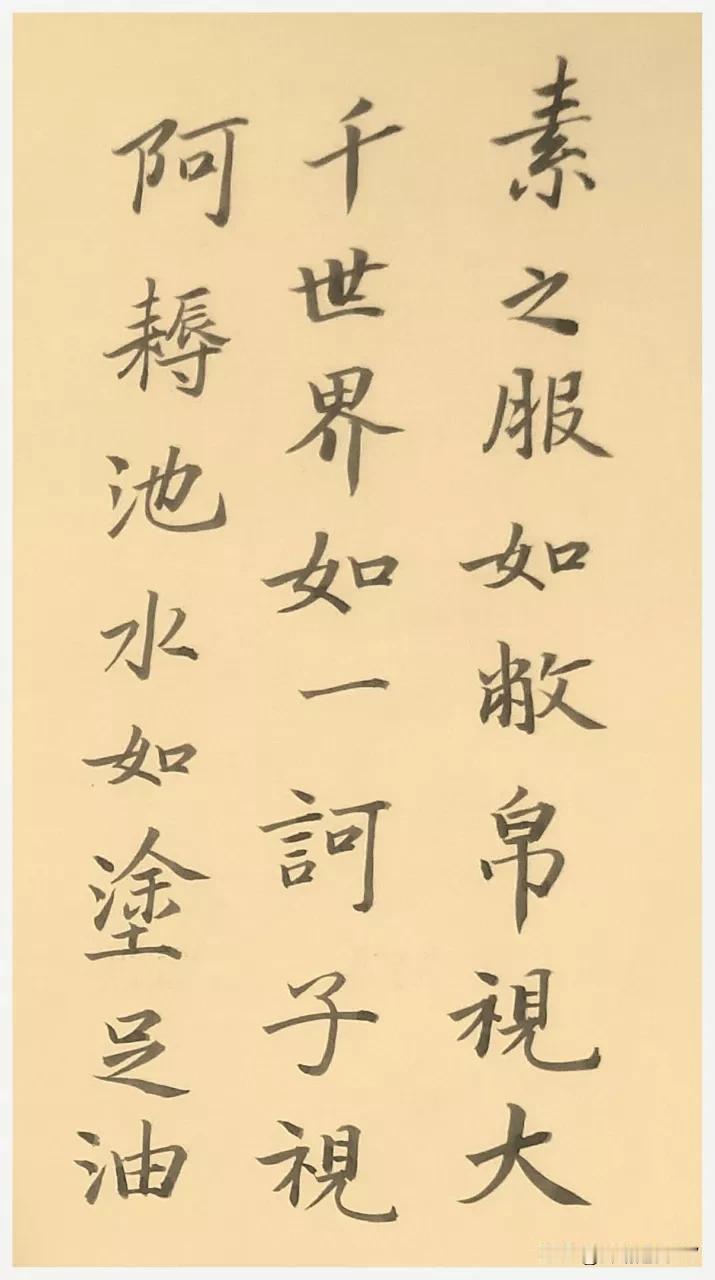 素之服如敝帛視大
千世界如一訶子視
阿耨池水如塗足油